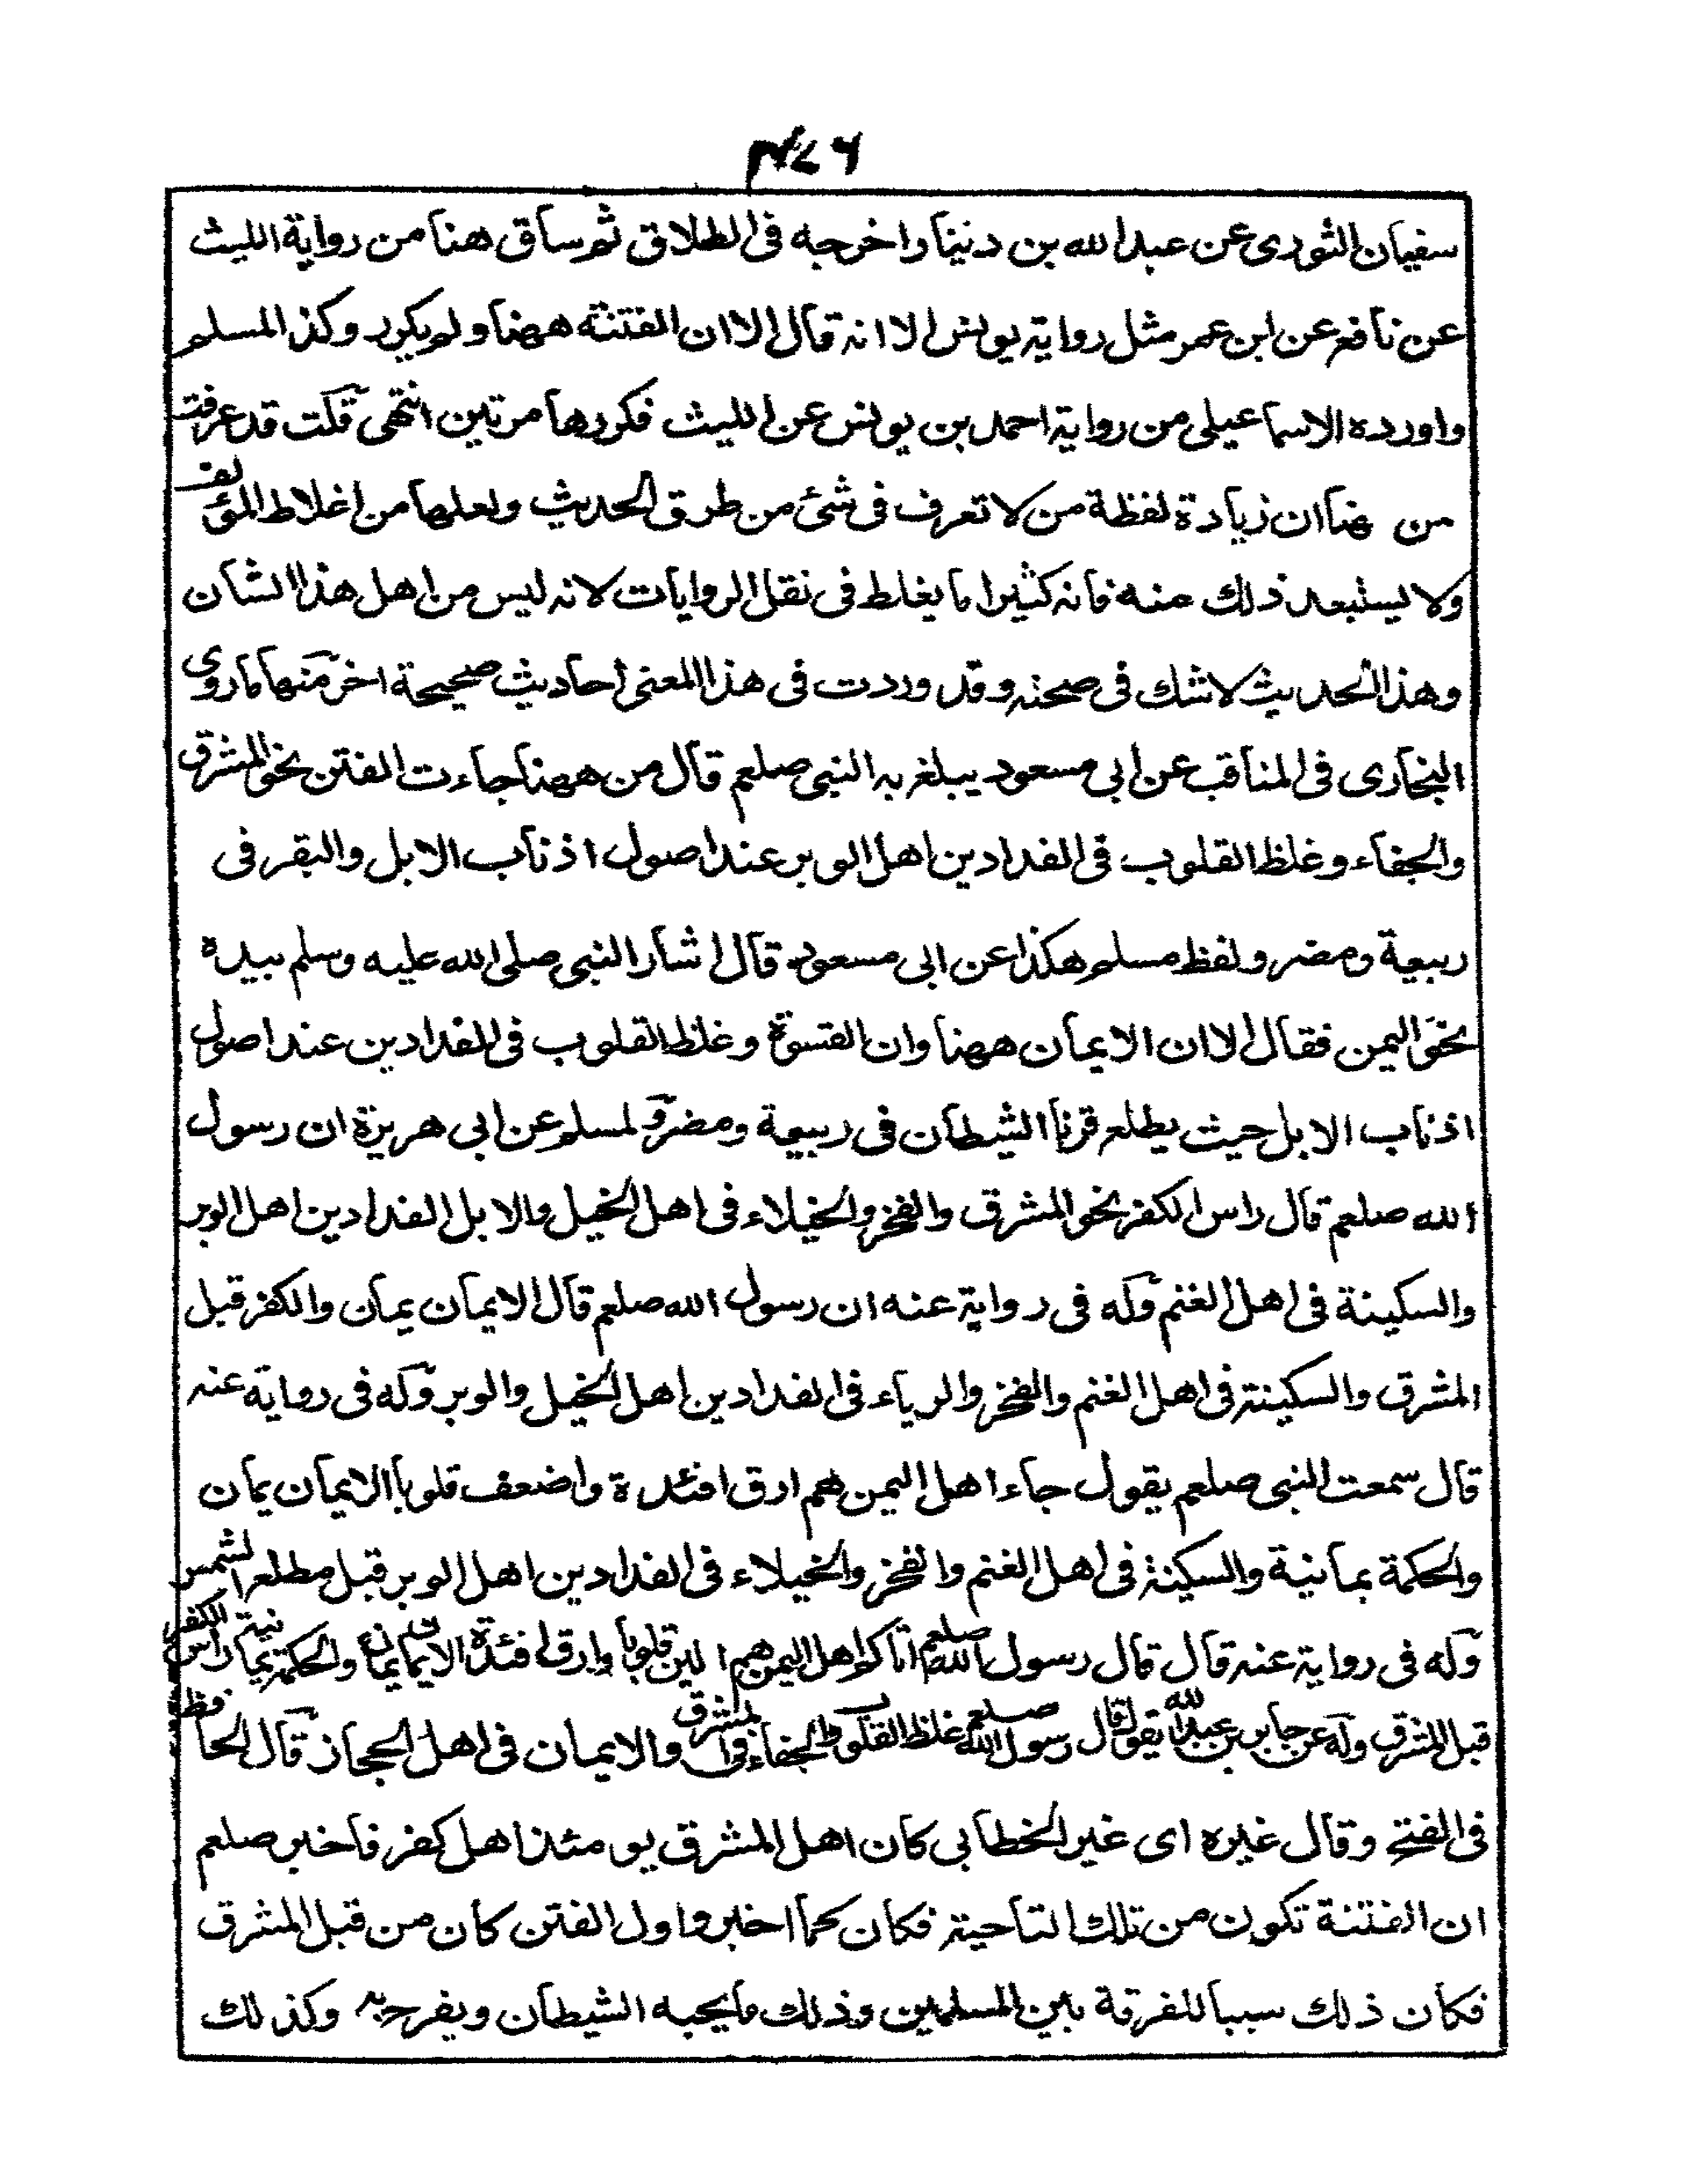 سفيان الثورى عن عبد الله بن دينار اخرجه فى الطلاق ثم ساق هنا من رواية الليث
عن نافع عن ابن عمر مثل رواية يونس الا انه قال الا ان الفتنة ههنا ولم يكرر وكذا لمسلم
واورده الاسماعيلى من رواية احمد بن يونس عن الليث فكررها مرتين انتهى قلت قد عرفت
من هنا ان زيادة لفظة من لا تعرف فى شئ من طرق الحديث ولعلها من اغلاط المؤلف
ولا يستبعد ذلك منه فانه كثيرا ما يغلط فى نقل الروايات لانه ليس من اهل هذا الشان
وهذا الحديث لا شك فى صحته وقد وردت فى هذا المعنى احاديث صحيحة اخر منها ما روى
البخارى فى المناقب عن ابى مسعود يبلغ به النبى صلعم قال من ههنا جاءت الفتن نحو المشرق
والجفاء وغلظ القلوب فى الفدادين اهل الوبر عند اصول اذناب الابل والبقر فى
ربيعة ومضر ولفظ مسلم هكذا عن ابى مسعود قال اشار النبى صلى الله عليه وسلم بيده
نحو اليمن فقال الا ان الايمان ههنا وان القسوة وغلظ القلوب فى الفدادين عند اصول
اذناب الابل حيث يطلع قرنا الشيطان فى ربيعة ومضر ولمسلم عن ابى هريرة ان رسول
الله صلعم قال راس الكفر نحو المشرق والفخر والخيلاء فى اهل الخيل والابل الفدادين اهل الوبر
والسكينة فى اهل الغنم وله فى رواية عنه ان رسول الله صلعم قال الايمان يمان والكفر قبل
المشرق والسكينة فى اهل الغنم والفخر والرياء فى الفدادين اهل الخيل والوبر وله فى رواية عنه
قال سمعت النبى صلعم يقول جاء اهل اليمن هم ارق افئدة واضعف قلوبا الايمان يمان
والحكمة يمانية والسكينة فى اهل الغنم والفخر والخيلاء فى الفدادين اهل الوبر قبل مطلع الشمس
وله فى رواية عنه قال قال رسول الله صلعم اتاكم اهل اليمن هم الين قلوبا وارق افئدة الايمان يمان والحكمة يمانية راس الكفر
قبل المشرق وله عن جابر بن عبد الله يقول قال رسول الله صلعم غلظ القلوب والجفاء فى المشرق والايمان فى اهل الحجاز قال الحافظ
فى الفتح وقال غيره اى غير الخطابى كان اهل المشرق يومئذ اهل كفر فاخبر صلعم
ان الفتنة تكون من تلك الناحية فكان كما اخبر واول الفتن كان من قبل المشرق
فكان ذلك سببا للفرقة بين المسلمين وذلك ما يحبه الشيطان ويفرح به وكذلك